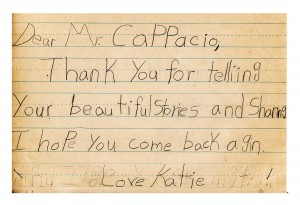 Dear Mr. Cappacio,
Thank You for telliing
Your beautiful stories and Sharing
I hope you come back agin.
Love Katie